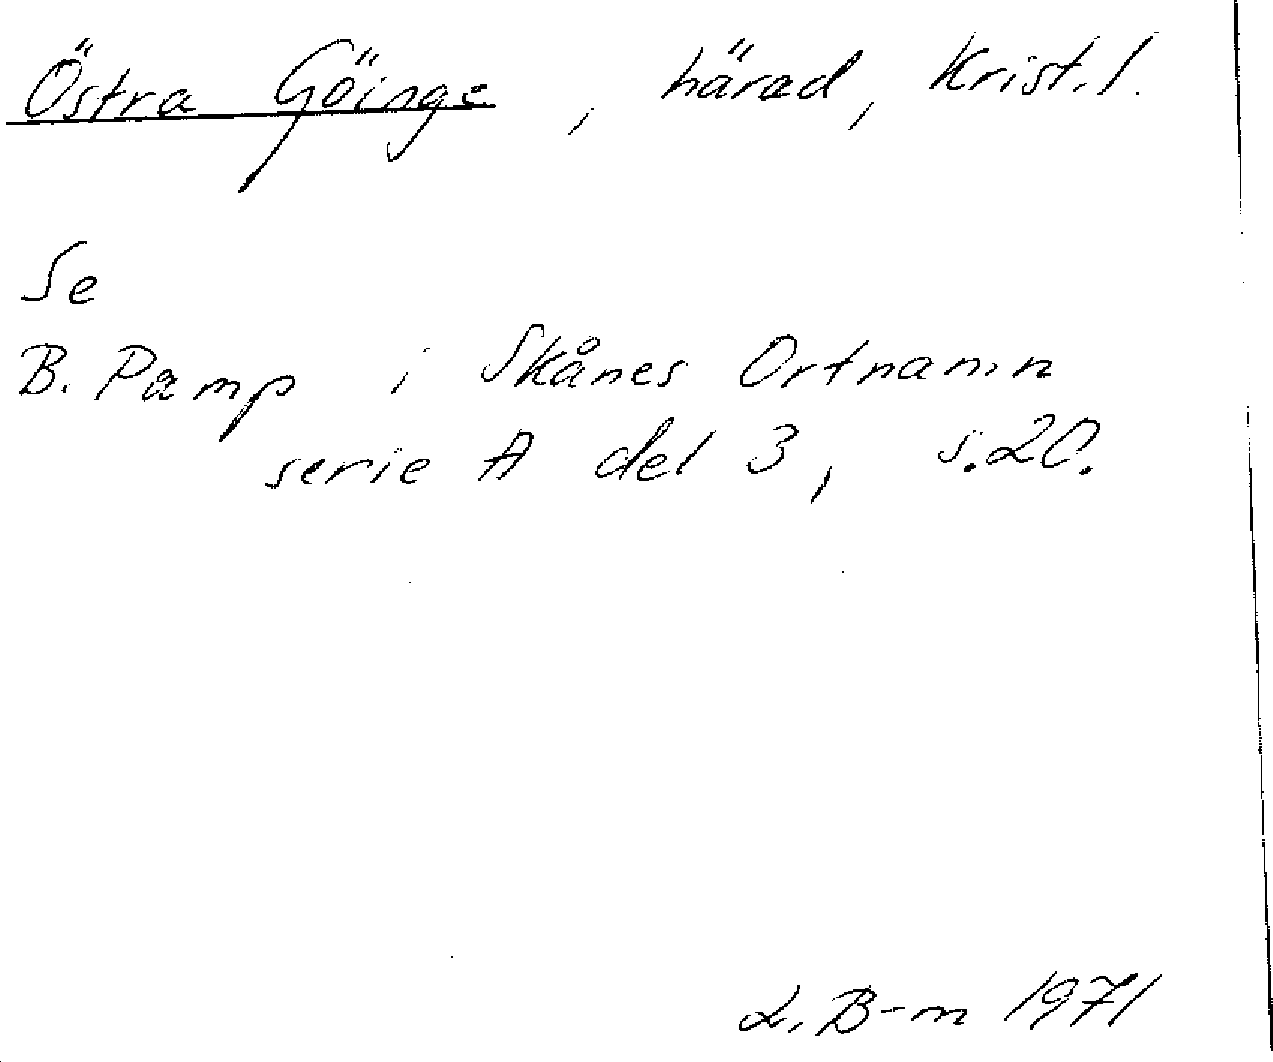 Östra Göinge, härad, Krist.l.
Se
B. Pamp i Skånes Ortnamn
serie A del 3, s.20.
L. B-m 1971